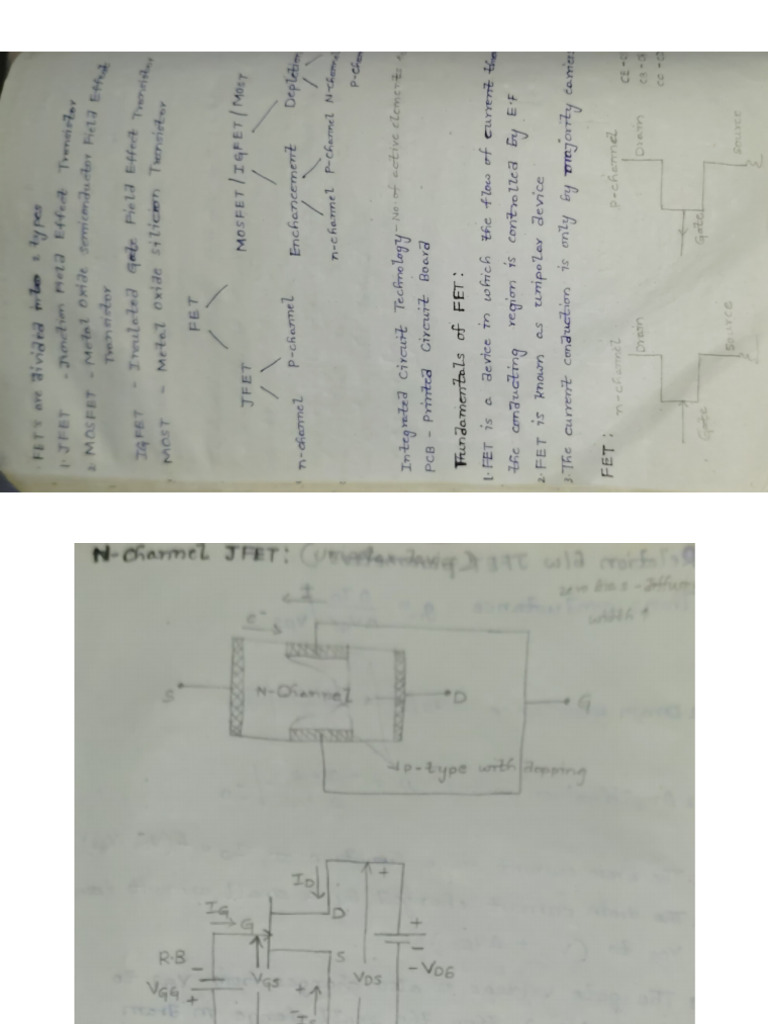 FET's are divided into 2 types
1. JFET - Junction Field Effect Transistor
2. MOSFET - Metal Oxide Semiconductor Field Effect
Transistor
IGFET - Insulated Gate Field Effect Transistor
MOST - Metal Oxide silicon Transistor
FET
JFET MOSFET/IGFET/MOST
n-channel P-channel Enchancement Depletion
n-channel P-channel N-channel
P-chan
Integrated Circuit Technology - No. of active elements
PCB - Printed Circuit Board
Fundamentals of FET:
1. FET is a device in which the flow of current
the conducting region is controlled by E.F
2. FET is known as unipolar device
3. The current conduction is only by majority carrier
FET: n-channel P-channel
Drain Drain
Gate Gate
Source Source
N-channel JFET:
e-
I
S N-Channel D G
p-type with dopping
ID
IG
G D
R.B S
VGG VGS VDS -VDG